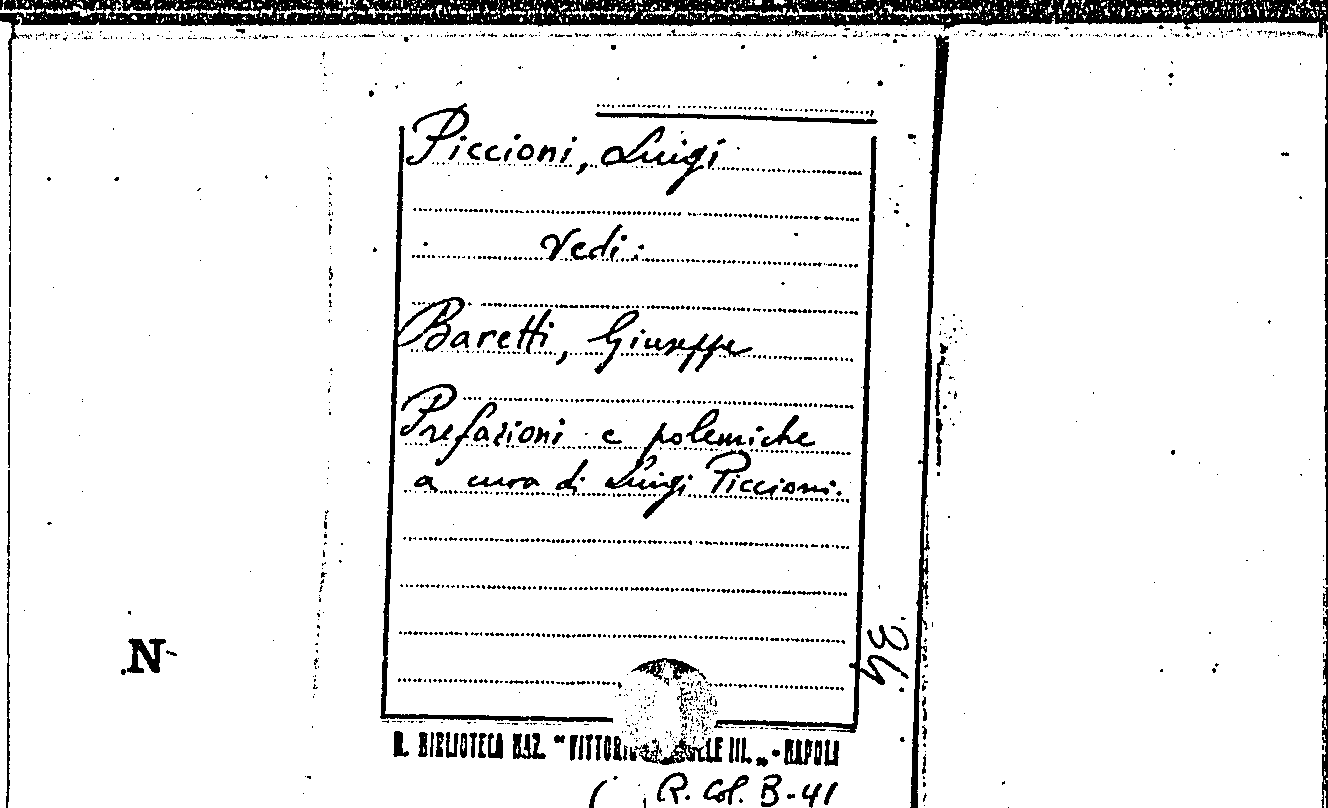 Piccioni, Luigi
Vedi:
Baretti, Giuseppe
Prefazioni e polemiche
a cura di Luigi Piccioni.
N
R. BIBLIOTECA NAZ. "VITTORIO III. „ - NAPOLI
R. Col. B-41